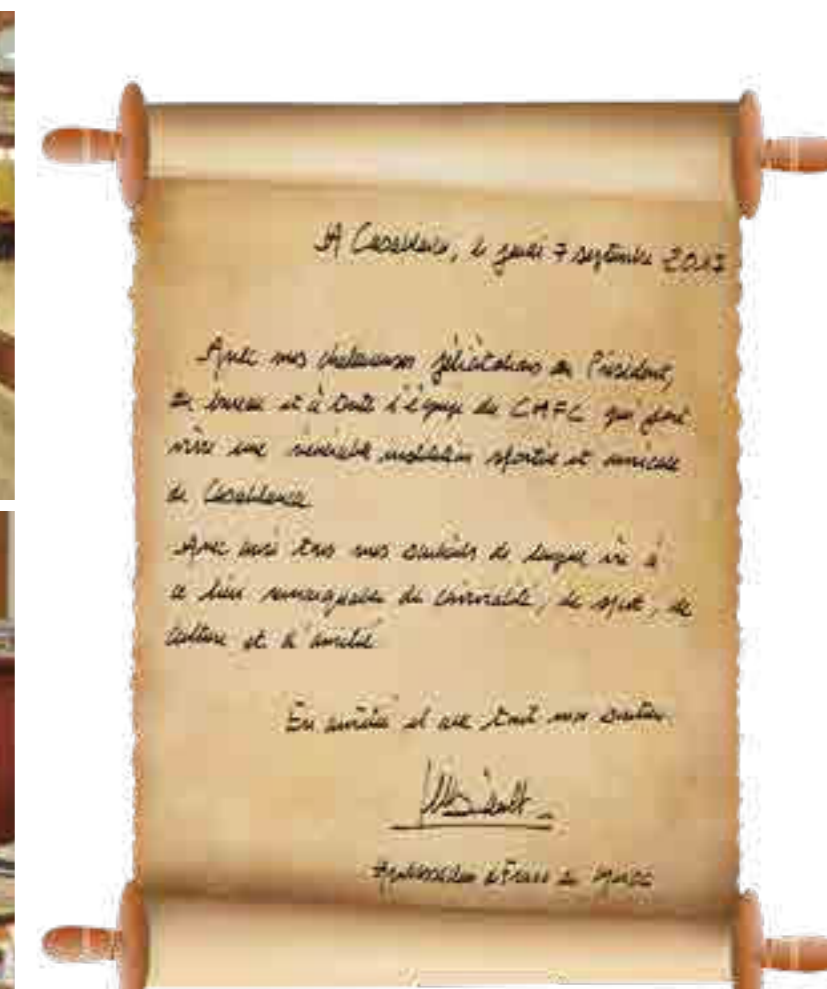 A Casablanca, le jeudi 7 septembre 2017
Avec mes chaleureuses félicitations au Président,
au bureau et à toute l'équipe du CAFC qui font
vivre une vénérable institution sportive et amicale
de Casablanca
Avec aussi tous mes souhaits de longue vie à
ce lieu remarquable de convivialité, de sport, de
culture et d'amitié
En amitié et avec tout mon soutien.
Ambassadeur de France au Maroc